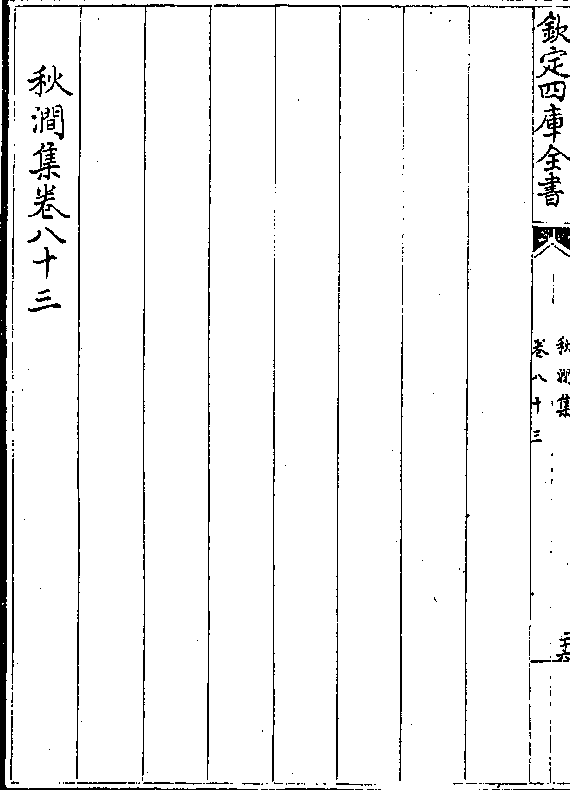 欽定四庫全書
秋澗集
卷八十三
秋澗集卷八十三